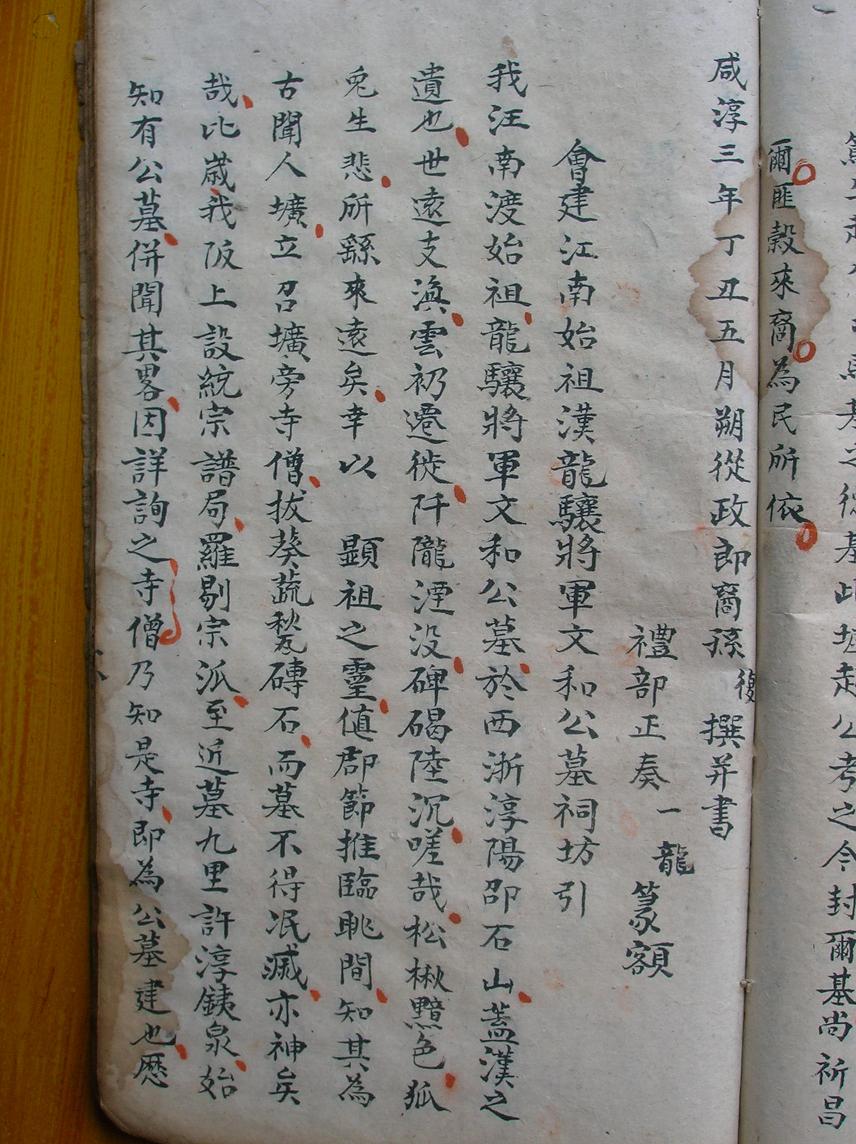 基尚祈昌
爾匪穀來裔為民所依
咸淳三年丁丑五月朔從政郎裔孫復撰并書
禮部正奏一龍篆額
會建江南始祖漢龍驤將軍文和公墓祠坊引
我汪南渡始祖龍驤將軍文和公墓於西浙淳陽卲石山蓋漢之
遺也世遠支滇雲礽遷徙阡隴湮没碑碣陸沉嗟哉松楸黯色狐
兎生悲所繇來遠矣幸以 顯祖之靈值郡節推臨眺間知其為
古聞人壙立召壙旁寺僧拔葵蔬甃磚石而墓不得泯滅亦神矣
哉比歲我阪上設統宗譜局羅剔宗派至近墓九里許淳銕泉始
知有公墓併聞其畧因詳詢之寺僧乃知是寺即為公墓建也歷